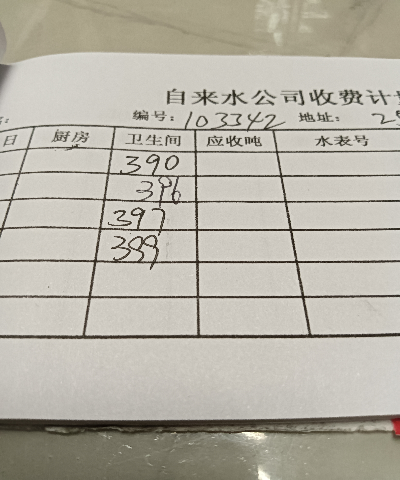 自来水公司收费计
编号：103342 地址：
日 厨房 卫生间 应收吨 水表号
390
396
397
399